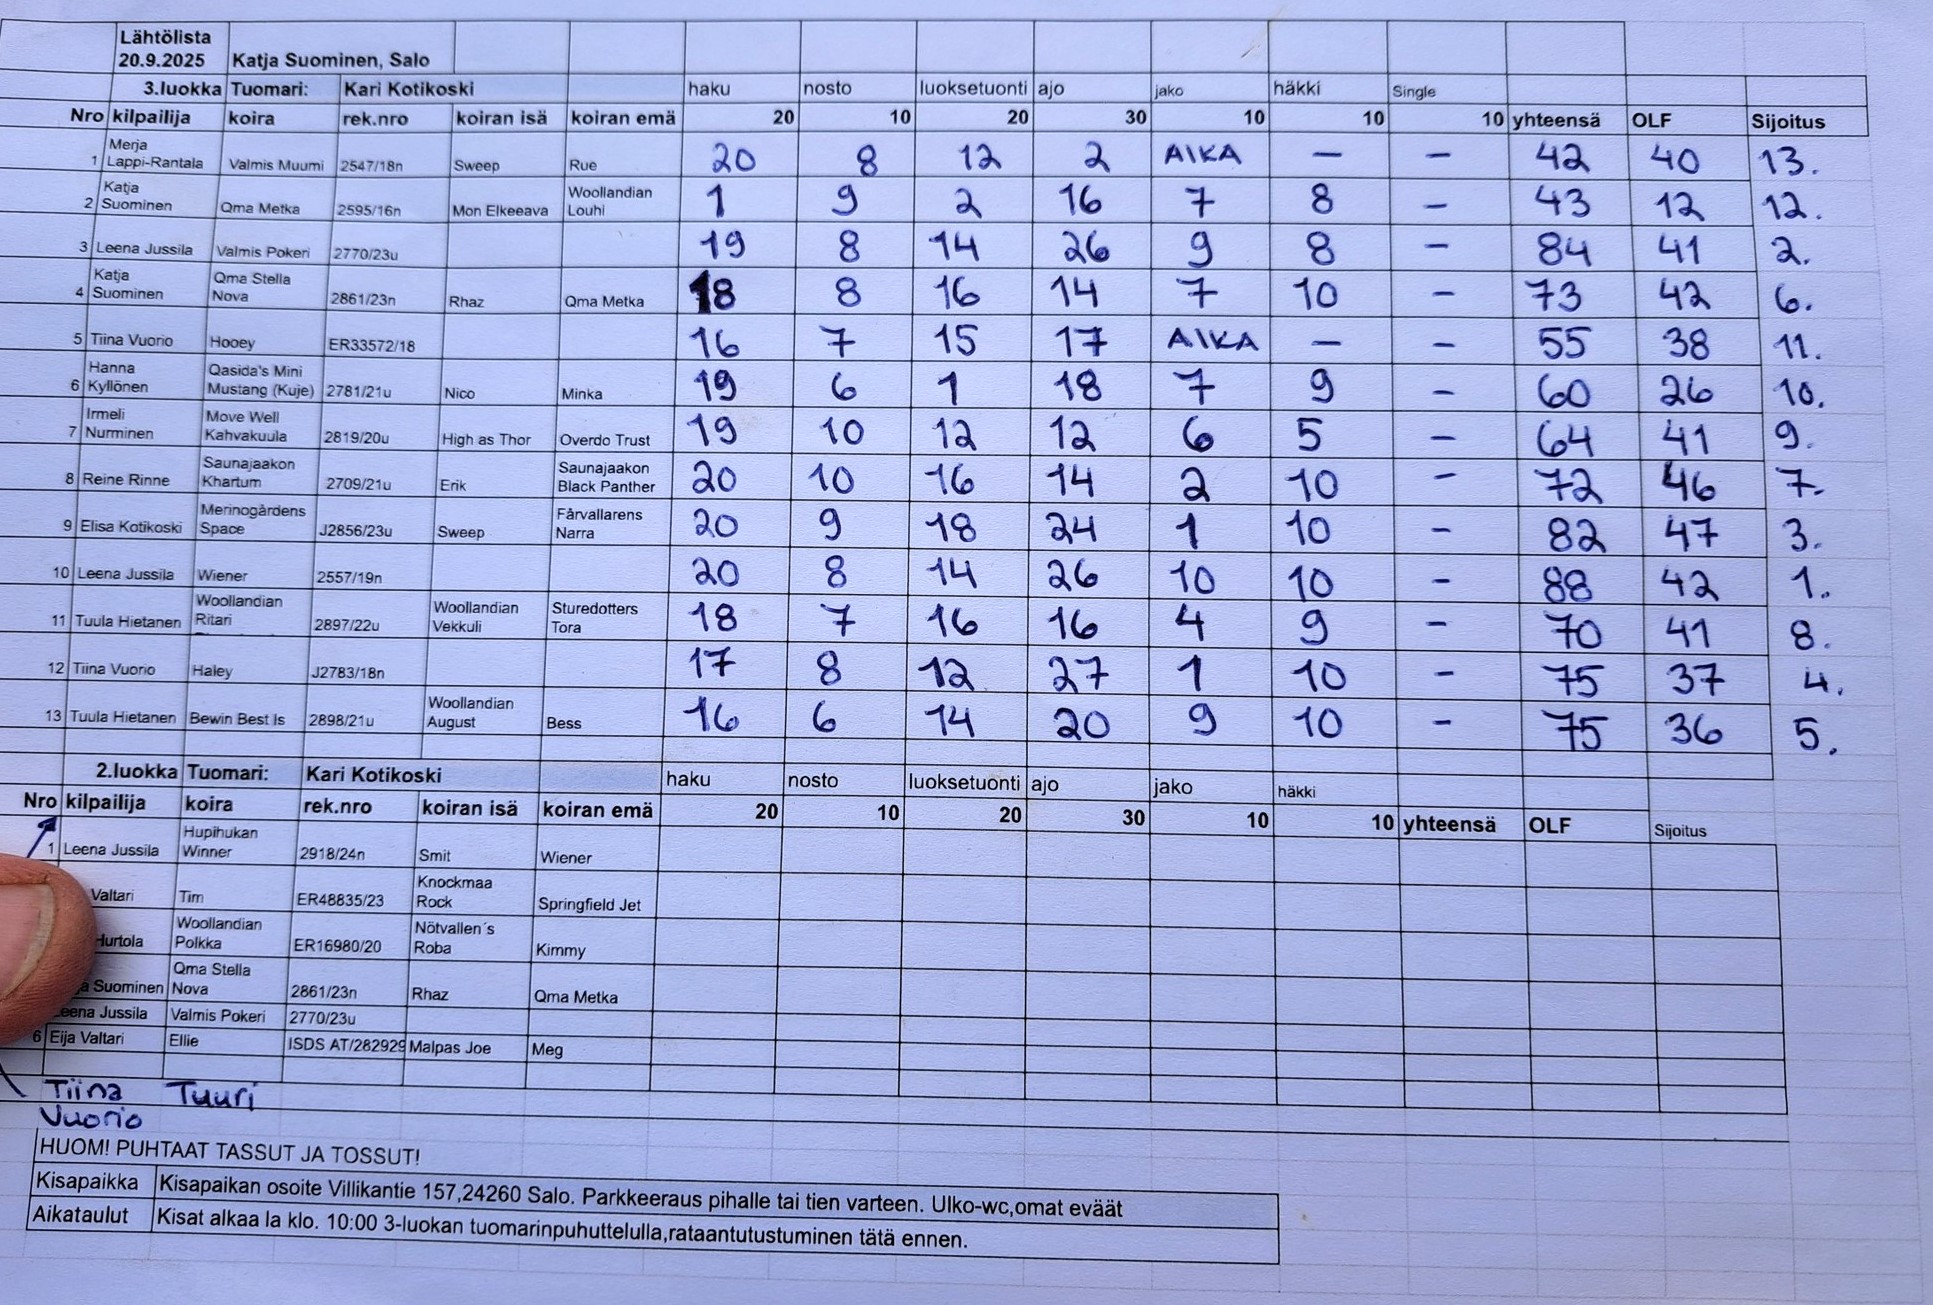 Lähtölista
20.9.2025 Katja Suominen, Salo
3.luokka Tuomari: Kari Kotikoski haku nosto luoksetuonti ajo jako häkki Single
Nro kilpailija koira rek.nro koiran isä koiran emä 20 10 20 30 10 10 10 yhteensä OLF Sijoitus
1 Merja Lappi-Rantala Valmis Muumi 2547/18n Sweep Rue 20 8 12 2 AIKA – – 42 40 13.
2 Katja Suominen Qma Metka 2595/16n Mon Elkeeava Woollandian Louhi 1 9 2 16 7 8 – 43 12 12.
3 Leena Jussila Valmis Pokeri 2770/23u 19 8 14 26 9 8 – 84 41 2.
4 Katja Suominen Qma Stella Nova 2861/23n Rhaz Qma Metka 18 8 16 14 7 10 – 73 42 6.
5 Tiina Vuorio Hooey ER33572/18 16 7 15 17 AIKA – – 55 38 11.
6 Hanna Kyllönen Qasida's Mini Mustang (Kuje) 2781/21u Nico Minka 19 6 1 18 7 9 – 60 26 10.
7 Irmeli Nurminen Move Well Kahvakuula 2819/20u High as Thor Overdo Trust 19 10 12 12 6 5 – 64 41 9.
8 Reine Rinne Saunajaakon Khartum 2709/21u Erik Saunajaakon Black Panther 20 10 16 14 2 10 – 72 46 7.
9 Elisa Kotikoski Merinogårdens Space J2856/23u Sweep Fårvallarens Narra 20 9 18 24 1 10 – 82 47 3.
10 Leena Jussila Wiener 2557/19n 20 8 14 26 10 10 – 88 42 1.
11 Tuula Hietanen Woollandian Ritari 2897/22u Woollandian Vekkuli Sturedotters Tora 18 7 16 16 4 9 – 70 41 8.
12 Tiina Vuorio Haley J2783/18n 17 8 12 27 1 10 – 75 37 4.
13 Tuula Hietanen Bewin Best Is 2898/21u Woollandian August Bess 16 6 14 20 9 10 – 75 36 5.
2.luokka Tuomari: Kari Kotikoski haku nosto luoksetuonti ajo jako häkki
Nro kilpailija koira rek.nro koiran isä koiran emä 20 10 20 30 10 10 yhteensä OLF Sijoitus
1 Leena Jussila Hupihukan Winner 2918/24n Smit Wiener
Valtari Tim ER48835/23 Knockmaa Rock Springfield Jet
Hurtola Woollandian Polkka ER16980/20 Nötvallen´s Roba Kimmy
Suominen Qma Stella Nova 2861/23n Rhaz Qma Metka
Leena Jussila Valmis Pokeri 2770/23u
6 Eija Valtari Ellie ISDS AT/282929 Malpas Joe Meg
Tiina Tuuri
Vuorio
HUOM! PUHTAAT TASSUT JA TOSSUT!
Kisapaikka Kisapaikan osoite Villikantie 157,24260 Salo. Parkkeeraus pihalle tai tien varteen. Ulko-wc,omat eväät
Aikataulut Kisat alkaa la klo. 10:00 3-luokan tuomarinpuhuttelulla,rataantutustuminen tätä ennen.